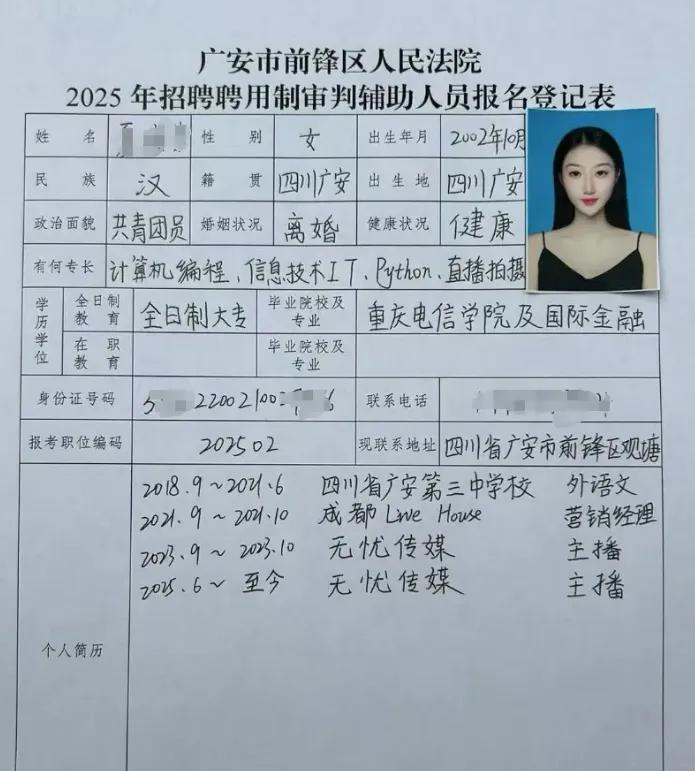 广安市前锋区人民法院
2025 年招聘聘用制审判辅助人员报名登记表
姓 名 性 别 女 出生年月 2002年10月
民 族 汉 籍 贯 四川广安 出 生 地 四川广安
政治面貌 共青团员 婚姻状况 离婚 健康状况 健康
有何专长 计算机编程、信息技术IT、Python、直播拍摄
学历学位 全日制教育 全日制大专 毕业院校及专业 重庆电信学院及国际金融
在职教育 毕业院校及专业
身份证号码 联系电话
报考职位编码 202502 现联系地址 四川省广安市前锋区观塘
2018.9～2021.6 四川省广安第三中学校 外语文
2021.9～2021.10 成都Live House 营销经理
2023.9～2023.10 无忧传媒 主播
2025.6～至今 无忧传媒 主播
个人简历